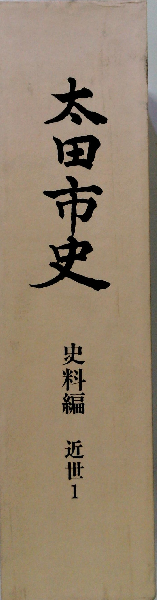 太田市史
史料編 近世1